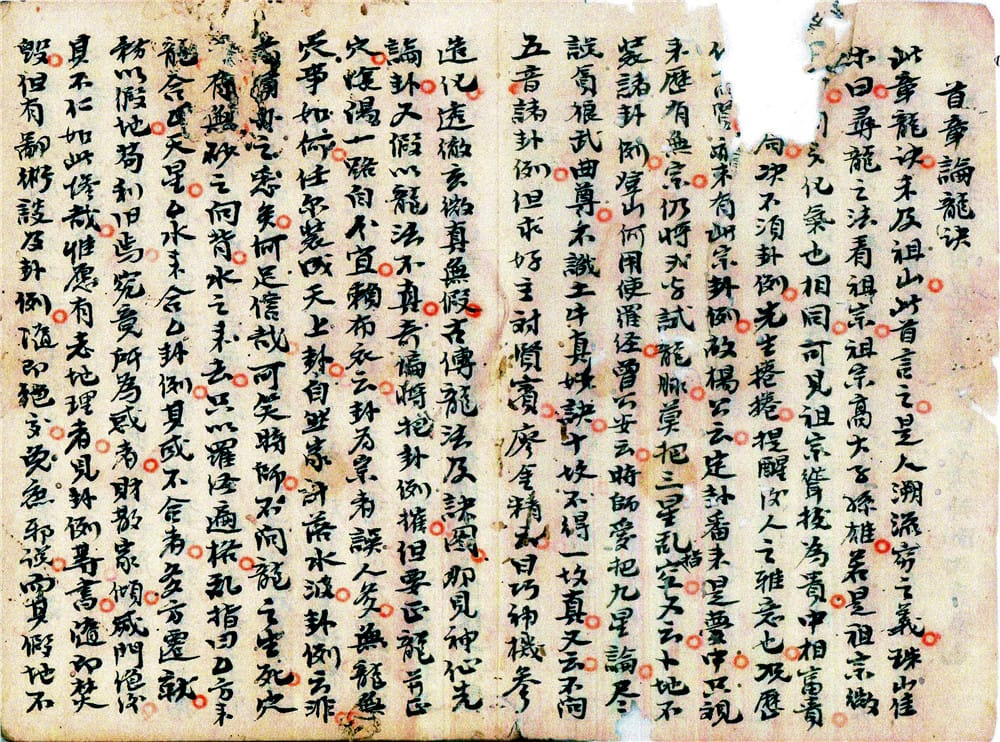 首章論龍訣
此章龍訣未及祖山此首言之是人溯流窮之義珠山佳
尓曰尋龍之法看祖宗祖宗高大子孫雄若是祖宗微
化氣也相同可見祖宗聳拔為貴中相富貴
不須卦例先生捲捲提醒後人之雅意也
未有此宗卦例故楊公云定卦番來是夢中只視
來歷有無宗仍將試龍脉莫把三星乱指空又云卜地不
裝諸卦例登山何用使羅経曾公安云時師愛把九星論尽
誤貪狼武曲尊不識土牛真妙訣十坟不得一坟真又云不問
五音諸卦例但求好主對賢賓廖金精曰巧神機參
造化透徹玄微真無假古傳龍法及訣圖那見神仙先
論卦又假以龍法不真奇偏將把卦例摧但要正龍并正
穴一路自不宜賴布衣云卦為宗者誤人多無龍無
穴事如何任尔裝成天上卦自然家計落水波卦例云非
之悉矣何足信哉可笑時師不問龍之生死穴
有無砂之向背水之來去只以羅経遍格乱指曰乙方來
龍合天星乙水來合乙卦例其或不合者多方遷就
務以假地苟利旧焉究竟所為惑者財散家傾滅門絕
具不仁如此慘哉惟愿有志地理者見卦例等書隨即焚
毀但有鄙術談及卦例隨即絕交免惹邪誤而真假地不